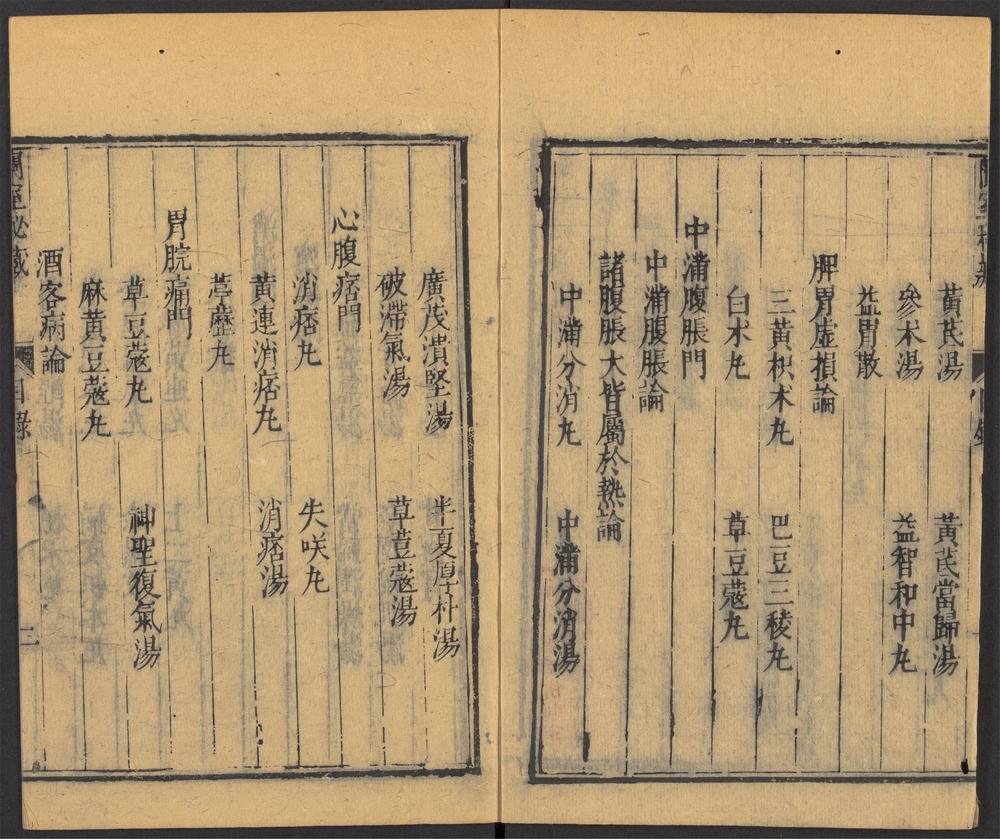 黃芪湯　黃芪當歸湯
參术湯　益智和中丸
益胃散
脾胃虛損論
三黃枳术丸　巴豆三稜丸
白术丸　草豆蔻丸
中滿腹脹門
中滿腹脹論
諸腹脹大皆屬於熱論
中滿分消丸　中滿分消湯
廣茂潰堅湯　半夏厚朴湯
破滯氣湯　草荳蔻湯
心腹痞門
消痞丸　失咲丸
黃連消痞丸　消痞湯
葶藶丸
胃脘痛門
草豆蔻丸　神聖復氣湯
麻黃豆蔻丸
酒客病論
蘭室祕藏　目錄　二